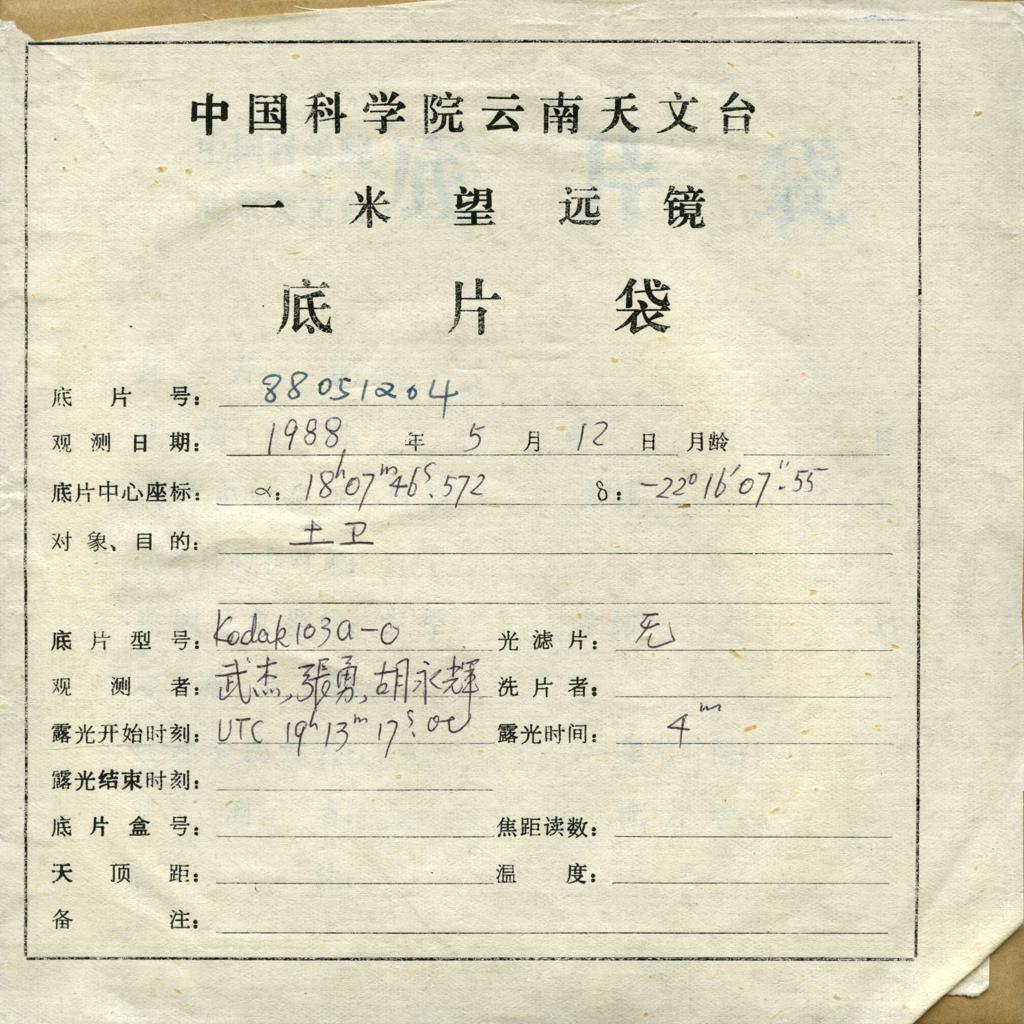 中国科学院云南天文台
一米望远镜
底片袋
底片号: 88051204
观测日期: 1988 年 5 月 12 日 月龄
底片中心座标: α: 18h07m46s.572 δ: -22°16′07″.55
对象、目的: 土卫
底片型号: Kodak103a-O 光滤片: 无
观测者: 武杰,張勇,胡永輝 洗片者:
露光开始时刻: UTC 19h13m17s.00 露光时间: 4m
露光结束时刻:
底片盒号: 焦距读数:
天顶距: 温度:
备注: